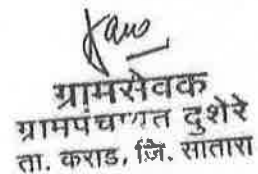 ग्रामसेवक
ग्रामपंचायत दुशेरे
ता. कराड, जि. सातारा